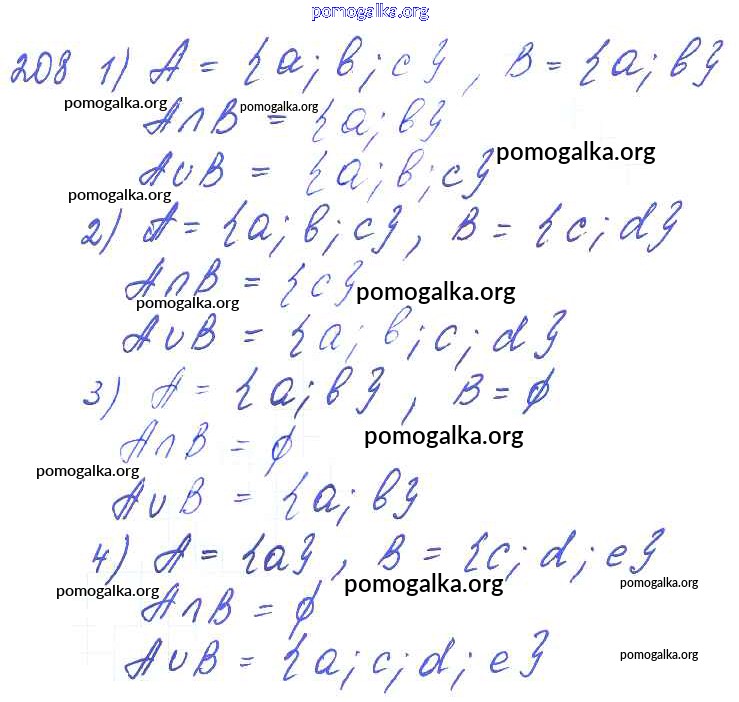 pomogalka.org
208 1) A = {a; b; c}, B = {a; b}
pomogalka.org pomogalka.org
A∩B = {a; b}
pomogalka.org
A∪B = {a; b; c}
pomogalka.org
2) A = {a; b; c}, B = {c; d}
A∩B = {c}
pomogalka.org
pomogalka.org
A∪B = {a; b; c; d}
3) A = {a; b}, B = ∅
pomogalka.org
A∩B = ∅
pomogalka.org
A∪B = {a; b}
4) A = {a}, B = {c; d; e}
pomogalka.org pomogalka.org pomogalka.org
A∩B = ∅
A∪B = {a; c; d; e}
pomogalka.org